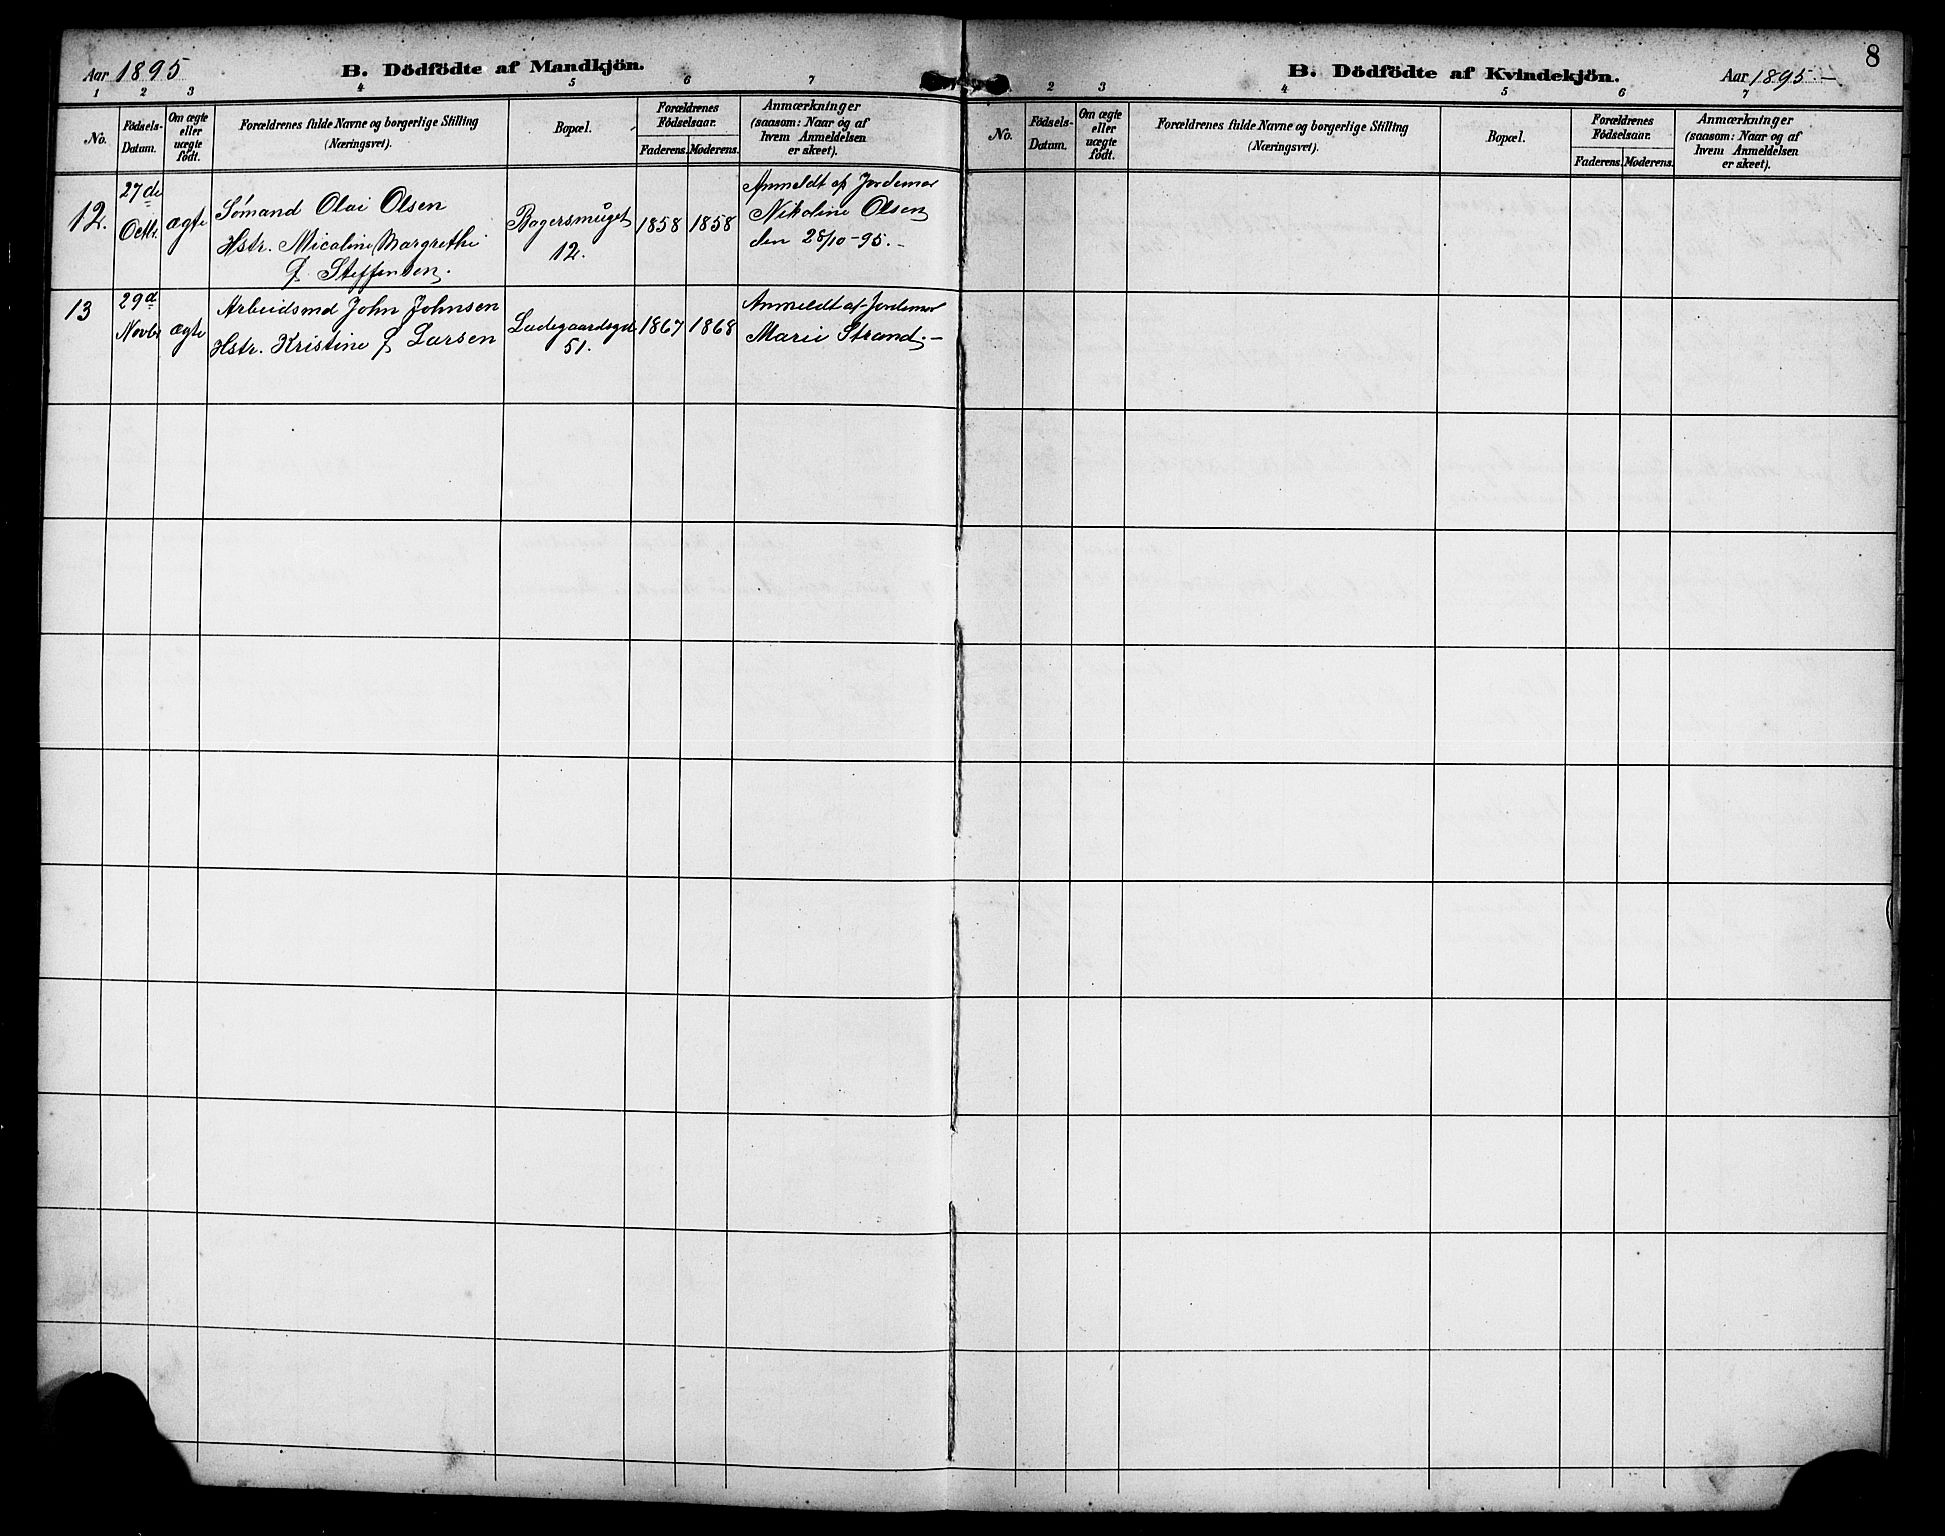 Aar 1895
B. Dödfödte af Mandkjön.
1 2 3 4 5 6 7
No.
Födsels-
Datum.
Om ægte
eller
uægte
födt.
Forældrenes fulde Navne og borgerlige Stilling
(Næringsvei).
Bopæl.
Forældrenes
Födselsaar.
Faderens. Moderens.
Anmærkninger
(saasom: Naar og af
hvem Anmeldelsen
er skeet).
12.
27de
Octbr.
ægte
Sømand Olai Olsen
Hstr. Micoline Margrethe
f. Steffensen.
Bagersmuget
12.
1858
1858
Anmeldt af Jordemor
Nikoline Olsen
den 28/10-95.-
13
29d
Novbr
ægte
Arbeidsmd John Johnsen
Hstr. Kristine f Larsen
Ladegaardsgd.
51.
1867
1868
Anmeldt af Jordemor
Marie Strand.-
8
B. Dödfödte af Kvindekjön.
Aar 1895.-
2 3 4 5 6 7
No.
Födsels-
Datum.
Om ægte
eller
uægte
födt.
Forældrenes fulde Navne og borgerlige Stilling
(Næringsvei).
Bopæl.
Forældrenes
Födselsaar.
Faderens. Moderens.
Anmærkninger
(saasom: Naar og af
hvem Anmeldelsen
er skeet).